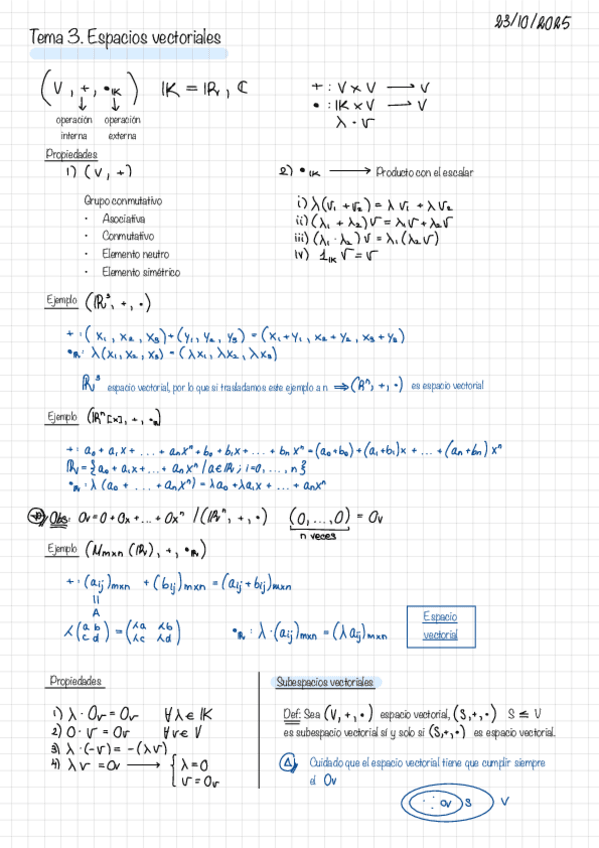 23/10/2025
Tema 3. Espacios vectoriales
(V, +, •IK) IK = IR, ℂ
+ : V x V → V
• : IK x V → V
λ · v
operación interna
operación externa
Propiedades
1) (V, +)
Grupo conmutativo
• Asociativa
• Conmutativo
• Elemento neutro
• Elemento simétrico
2) •IK → Producto con el escalar
i) λ(v₁ + v₂) = λv₁ + λv₂
ii) (λ₁ + λ₂)v = λ₁v + λ₂v
iii) (λ₁ · λ₂)v = λ₁(λ₂v)
iv) 1IK v = v
Ejemplo (IR³, +, ·)
+ : (x₁, x₂, x₃) + (y₁, y₂, y₃) = (x₁+y₁, x₂+y₂, x₃+y₃)
•R: λ(x₁, x₂, x₃) = (λx₁, λx₂, λx₃)
IR³ espacio vectorial, por lo que si trasladamos este ejemplo a n ⇒ (IRⁿ, +, ·) es espacio vectorial
Ejemplo (IRⁿ[x], +, •R)
+ : a₀ + a₁x + ... + aₙxⁿ + b₀ + b₁x + ... + bₙxⁿ = (a₀+b₀) + (a₁+b₁)x + ... + (aₙ+bₙ)xⁿ
IR = {a₀ + a₁x + ... + aₙxⁿ / a ∈ IR ; i=0, ..., n}
•R: λ(a₀ + ... + aₙxⁿ) = λa₀ + λa₁x + ... + aₙxⁿ
Obs: 0v = 0 + 0x + ... + 0xⁿ / (IRⁿ, +, ·) (0, ..., 0) = 0v
n veces
Ejemplo (Mmxn (IR), +, •R)
+ : (aij)mxn + (bij)mxn = (aij + bij)mxn
II
A
λ(a b / c d) = (λa λb / λc λd)
•R: λ · (aij)mxn = (λaij)mxn
Espacio
vectorial
Propiedades
1) λ · 0v = 0v ∀λ ∈ IK
2) 0 · v = 0v ∀v ∈ V
3) λ · (-v) = -(λv)
4) λv = 0v → { λ = 0
v = 0v
Subespacios vectoriales
Def: Sea (V, +, ·) espacio vectorial, (S, +, ·) S ≤ V
es subespacio vectorial sí y solo si (S, +, ·) es espacio vectorial.
Cuidado que el espacio vectorial tiene que cumplir siempre
el 0v
0v S V